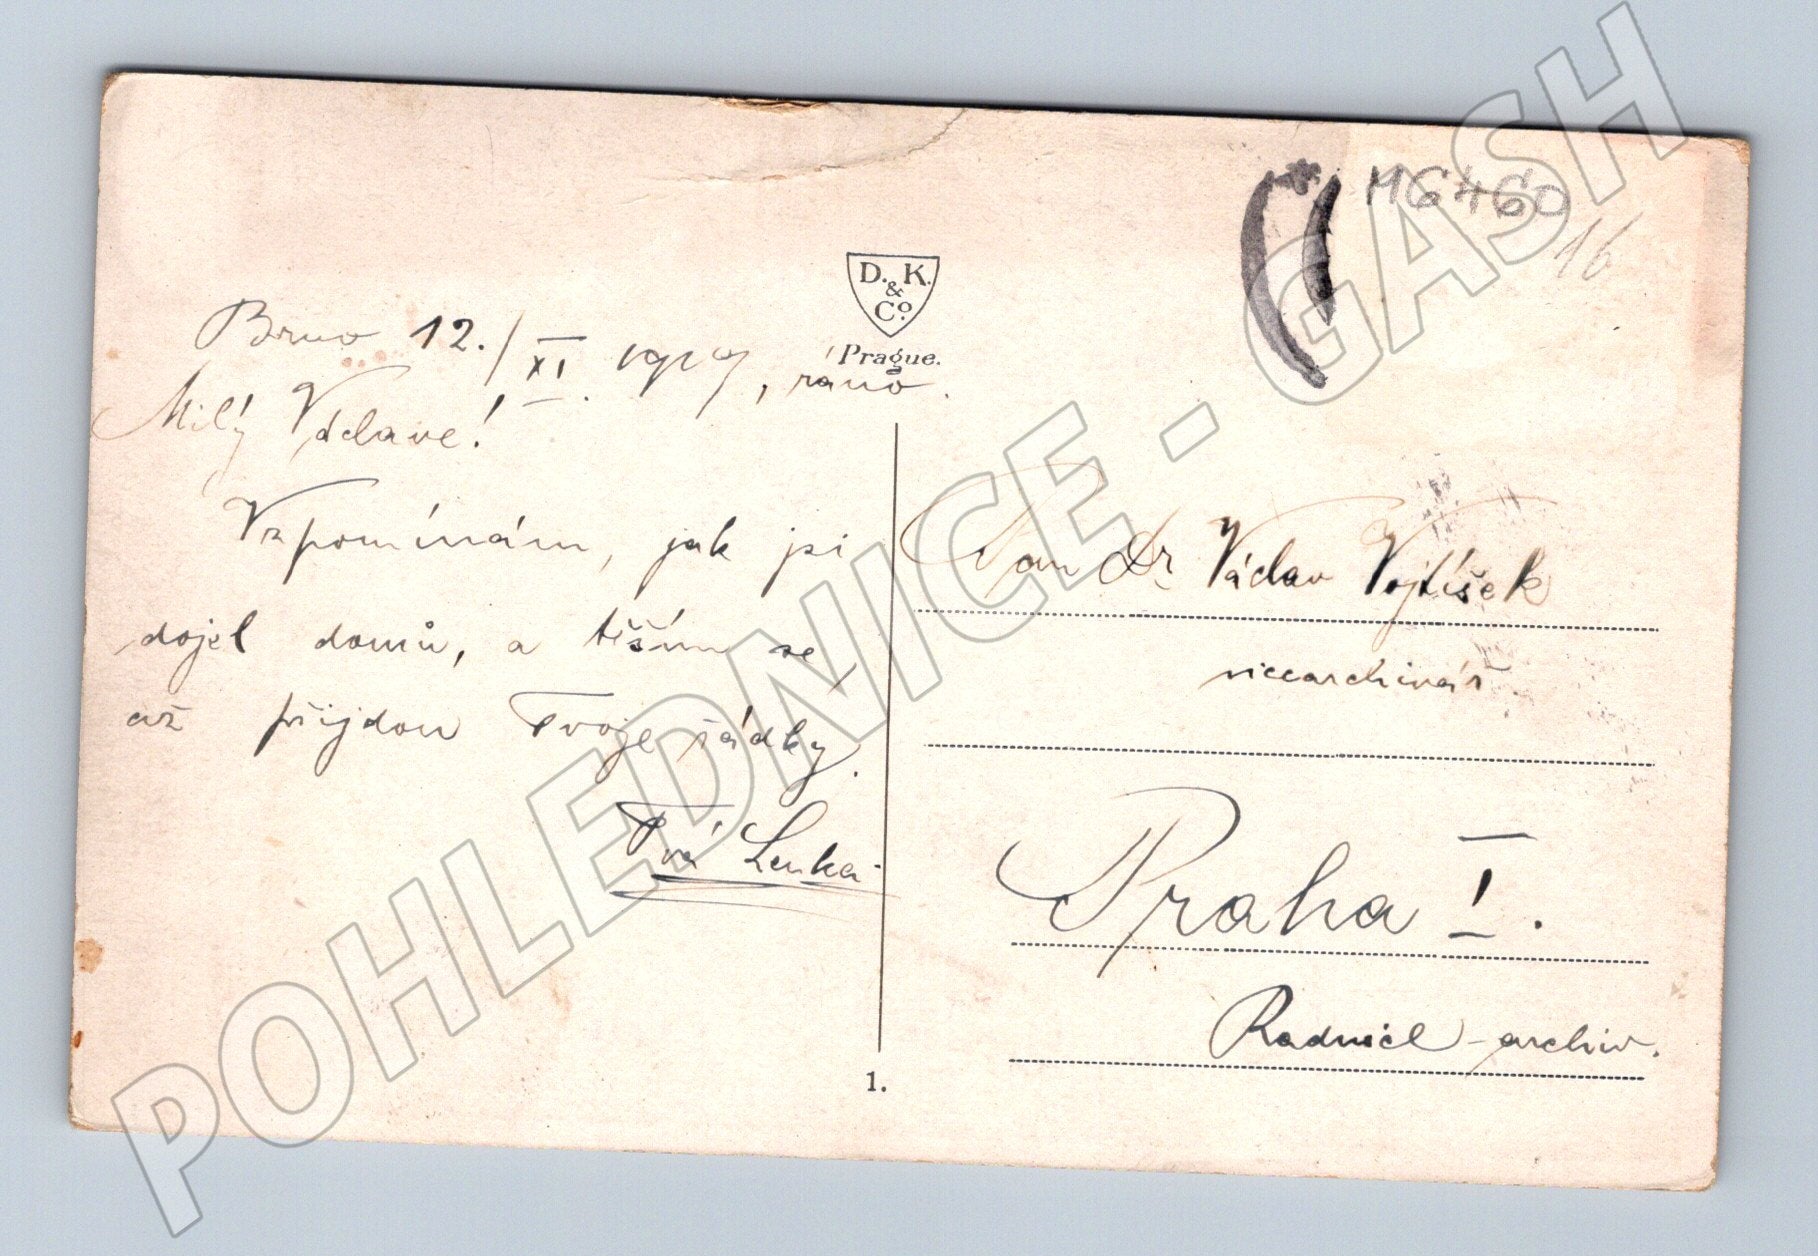 M6460
16
D. K.
&
Co.
Prague.
Brno 12./XI. 1919, ráno.
Milý Václave!
Vzpomínám, jak jsi
dojel domů, a těším se
až přijdou Tvoje řádky.
Tvá Lenka
Pan Dr Václav Vojtíšek
vicearchivář
Praha I.
Radnice - archiv.
1.
POHLEDNICE - GASH